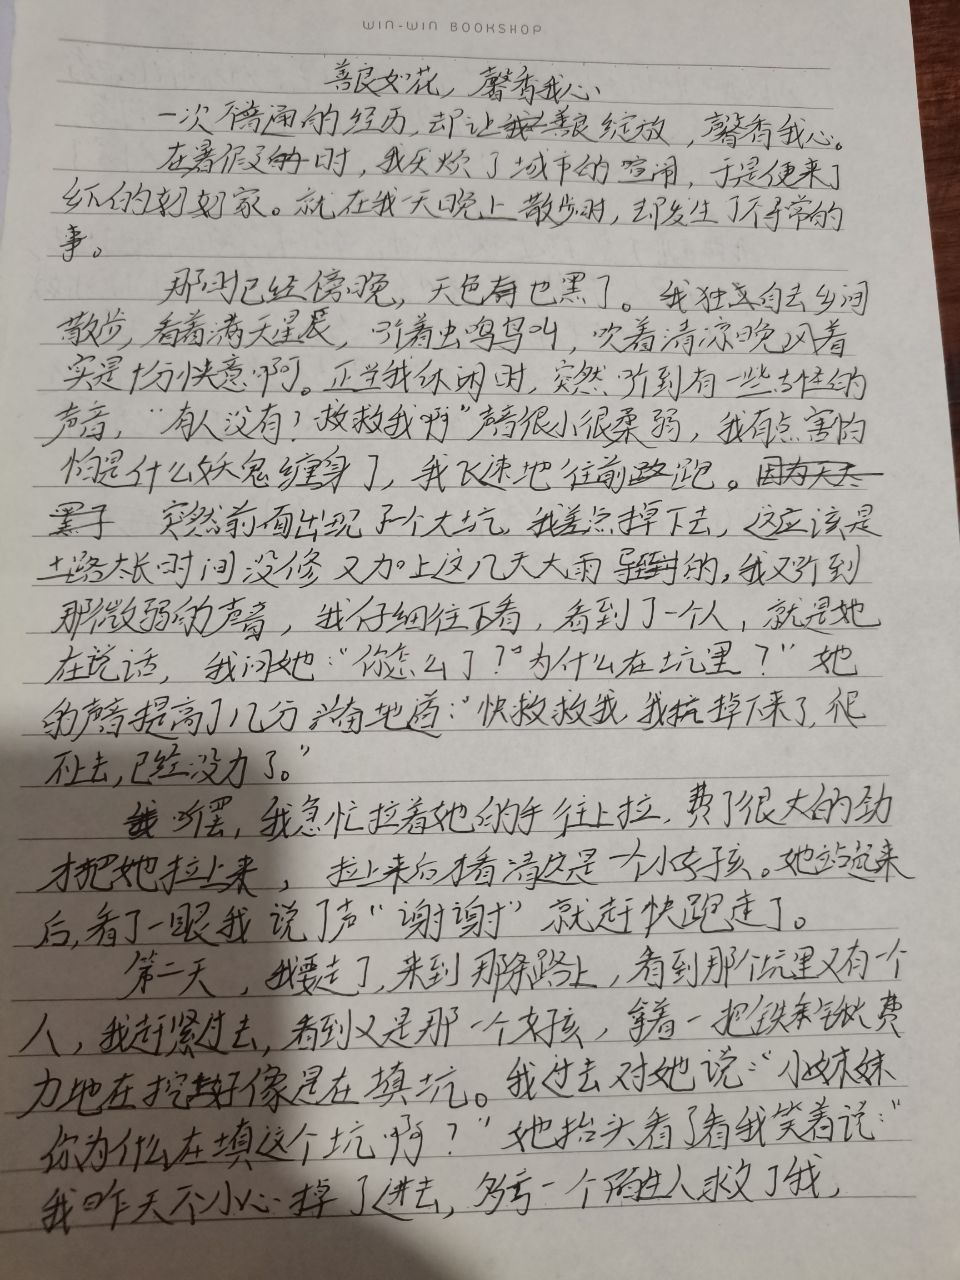 WIN-WIN BOOKSHOP
善良如花，馨香我心
一次普通的经历，却让善良绽放，馨香我心。
在暑假的时，我厌烦了城市的喧闹，于是便来了
乡下的奶奶家。就在我一天晚上散步时，却发生了不寻常的
事。
那时已经傍晚，天色有也黑了。我独立自去乡间
散步，看着满天星辰，听着虫鸣鸟叫，吹着清凉晚风着
实是十分快意啊。正当我休闲时，突然听到有一些古怪的
声音，"有人没有？救救我啊"声音很小很柔弱，我有点害怕
怕是什么妖鬼缠身了，我飞速地往前跑。因为天太
黑了 突然前面出现了一个大坑，我差点掉下去，这应该是
土路太长时间没修又加上这几天大雨导致的，我又听到
那微弱的声音，我仔细往下看，看到了一个人，就是她
在说话，我问她："你怎么了？为什么在坑里？"她
的声音提高了几分兴奋地道："快救救我，我掉下来了，爬
不上去，已经没力了。"
听罢，我急忙拉着她的手往上拉，费了很大的劲
才把她拉上来，拉上来后才看清这是一个小女孩。她站起来
后，看了一眼我说了声"谢谢"就赶快跑走了。
第二天，我要走了，来到那条路上，看到那个坑里又有一个
人，我赶紧过去，看到又是那一个女孩，拿着一把铁锹费
力地在挖好像是在填坑。我过去对她说："小妹妹
你为什么在填这个坑啊？"她抬头看了看我笑着说："
我昨天不小心掉了进去，多亏一个陌生人救了我，